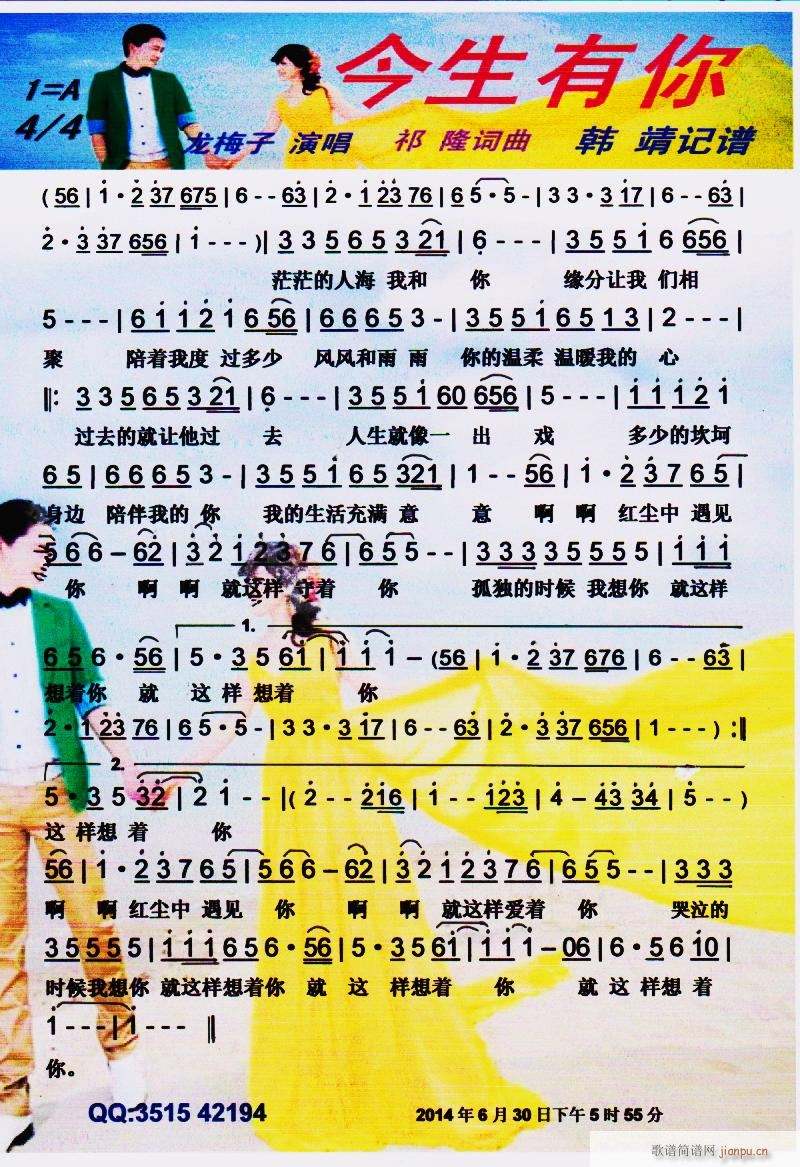 今生有你
1=A
4/4
龙梅子 演唱 祁 隆词曲 韩 靖记谱
( 56 | 1 · 2 37 675 | 6 - - 63 | 2 · 1 23 76 | 6 5 · 5 - | 3 3 · 3 17 | 6 - - 63 |
2 · 3 37 656 | 1 - - - )| 3 3 5 6 5 3 21 | 6 - - - | 3 5 5 1 6 656 |
茫茫的人海 我和 你 缘分让我 们相
5 - - - | 6 1 1 2 1 6 56 | 6 6 6 5 3 - | 3 5 5 1 6 5 1 3 | 2 - - - |
聚 陪着我度 过多少 风风和雨 雨 你的温柔 温暖我的 心
‖: 3 3 5 6 5 3 21 | 6 - - - | 3 5 5 1 60 656 | 5 - - - | 1 1 1 2 1
过去的就让他过 去 人生就像一 出 戏 多少的坎坷
6 5 | 6 6 6 5 3 - | 3 5 5 1 6 5 321 | 1 - - 56 | 1 · 2 3 7 6 5 |
身边 陪伴我的 你 我的生活充满 意 意 啊 啊 红尘中 遇见
5 6 6 - 62 | 3 2 1 2 3 7 6 | 6 5 5 - - | 3 3 3 3 5 5 5 5 | 1 1 1
你 啊 啊 就这样 守着 你 孤独的时候 我想你 就这样
1.
6 5 6 · 56 | 5 · 3 5 61 | 1 1 1 - (56 | 1 · 2 37 676 | 6 - - 63 |
想着你 就 这 样 想着 你
2 · 1 23 76 | 6 5 · 5 - | 3 3 · 3 17 | 6 - - 63 | 2 · 3 37 656 | 1 - - - ) :‖
2.
5 · 3 5 32 | 2 1 - - |( 2 - - 216 | 1 - - 123 | 4 - 43 34 | 5 - - )
这 样想 着 你
56 | 1 · 2 3 7 6 5 | 5 6 6 - 62 | 3 2 1 2 3 7 6 | 6 5 5 - - | 3 3 3
啊 啊 红尘中 遇见 你 啊 啊 就这样爱着 你 哭泣的
3 5 5 5 5 | 1 1 1 6 5 6 · 56 | 5 · 3 5 61 | 1 1 1 - 06 | 6 · 5 6 10 |
时候我想你 就这样想着你 就 这 样想着 你 就 这 样想 着
1 - - - | 1 - - - ‖
你。
QQ:3515 42194
2014 年 6 月 30 日下午 5 时 55 分
歌谱简谱网 jianpu.cn